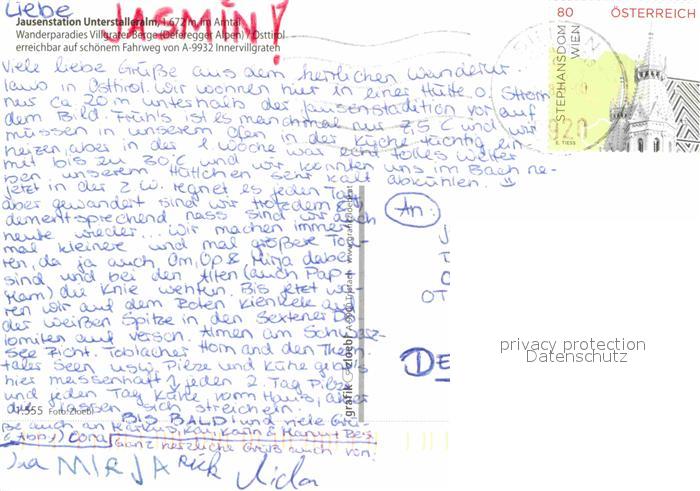 Liebe
JASMIN!
Jausenstation Unterstalleralm, 1.672 m, im Arntal
Wanderparadies Villgrater Berge (Deferegger Alpen) / Osttirol
erreichbar auf schönem Fahrweg von A-9932 Innervillgraten
Viele liebe Grüße aus dem herrlichen Wanderur-
laub in Osttirol. Wir wohnen hier in einer Hütte o. Strom
nur ca. 20 m unterhalb der Jausenstadition vor auf
dem Bild. Früh's ist es manchmal nur 7,5 C und wir
müssen in unserem Ofen in der Küche tüchtig ein
heizen, aber in der 1. Woche war echt tolles Wetter
mit bis zu 30°C und wir konnten uns im Bach ne-
ben unserem Hüttchen sehr kalt abkühlen.
Jetzt in der 2 W. regnet es jeden Tag
aber gewandert sind wir trotzdem &
dementsprechend nass sind wir auch
heute wieder... Wir machen immer
mal kleinere und mal größere Tou-
ren, da ja auch Om, Op & Mirja dabei
sind und bei den Alten (auch Pap +
Mam) die Knie wehtun. Bis jetzt wa-
ren wir auf dem Roten Kienkele
der weißen Spitze in den Sextener Do-
lomiten auf versch. Almen am Schwarz-
see Richt. Toblacher Horn and den Thurn-
taler Seen usw. Pilze und Kühe gibts
hier massenhaft, jeden 2. Tag Pilze
und jeden Tag Kühe vorm Haus, aber
die lassen sich streicheln.
1.555 Foto: Zloebl
BIS BALD und viele Grü-
ße auch an Markus, Kay, Karin &
Ganz herzliche Grüße auch von:
MIRJA Rick
grafik zloebl
An:
OT
DE
80
ÖSTERREICH
STEPHANSDOM
WIEN
E. TIESS
privacy protection
Datenschutz